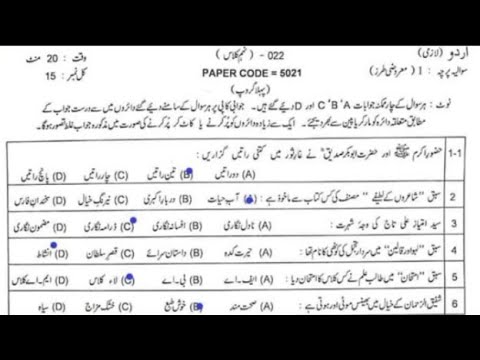 اردو (لازمی) 022 - (نہم کلاس) وقت : 20 منٹ
سوالیہ پرچہ : I (معروضی طرز) PAPER CODE = 5021 کل نمبر : 15
(پہلا گروپ)
نوٹ : ہر سوال کے چار ممکنہ جوابات A ' B ' C اور D دیے گئے ہیں۔ جوابی کاپی پر ہر سوال کے سامنے دیے گئے دائروں میں سے درست جواب کے
مطابق متعلقہ دائرہ کو مارکر یا پین سے بھر دیجئے۔ ایک سے زیادہ دائروں کو پُر کرنے یا کاٹ کر پُر کرنے کی صورت میں مذکورہ جواب غلط تصور ہوگا۔
1-1 حضور اکرم ﷺ اور حضرت ابوبکر صدیقؓ نے غارِ ثور میں کتنی راتیں گزاریں :
(A) دو راتیں (B) تین راتیں (C) چار راتیں (D) پانچ راتیں
2 سبق "شاعروں کے لطیفے" مصنف کی کس کتاب سے ماخوذ ہے : (A) آب حیات (B) دربار اکبری (C) نیرنگ خیال (D) سخندان فارس
3 سید امتیاز علی تاج کی وجۂ شہرت : (A) ناول نگاری (B) افسانہ نگاری (C) ڈرامہ نگاری (D) مضمون نگاری
4 سبق "لہو اور قالین" میں سردار تجمل کی کوٹھی کا نام تھا : (A) حیرت کدہ (B) داستان سرائے (C) قصرِ سلطان (D) النشاط
5 سبق "امتحان" میں طالب علم نے کس کلاس کا امتحان دیا : (A) ایف۔اے (B) بی۔اے (C) لاء کلاس (D) ایم۔اے کلاس
6 شفیق الرحمان کے خیال میں بھینس موٹی اور ہوتی ہے : (A) صحت مند (B) خوش طبع (C) خشک مزاج (D) سیاہ